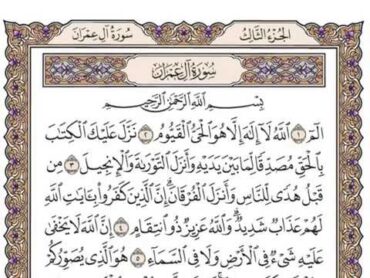 الجزء الثالث
سورة آل عمران
سورة آل عمران
بسم الله الرحمن الرحيم
الٓمٓ ١ ٱللَّهُ لَآ إِلَٰهَ إِلَّا هُوَ ٱلْحَىُّ ٱلْقَيُّومُ ٢ نَزَّلَ عَلَيْكَ ٱلْكِتَٰبَ
بِٱلْحَقِّ مُصَدِّقًا لِّمَا بَيْنَ يَدَيْهِ وَأَنزَلَ ٱلتَّوْرَىٰةَ وَٱلْإِنجِيلَ ٣ مِن
قَبْلُ هُدًى لِّلنَّاسِ وَأَنزَلَ ٱلْفُرْقَانَ إِنَّ ٱلَّذِينَ كَفَرُوا۟ بِـَٔايَٰتِ ٱللَّهِ
لَهُمْ عَذَابٌ شَدِيدٌ وَٱللَّهُ عَزِيزٌ ذُو ٱنتِقَامٍ ٤ إِنَّ ٱللَّهَ لَا يَخْفَىٰ
عَلَيْهِ شَىْءٌ فِى ٱلْأَرْضِ وَلَا فِى ٱلسَّمَآءِ ٥ هُوَ ٱلَّذِى يُصَوِّرُكُمْ